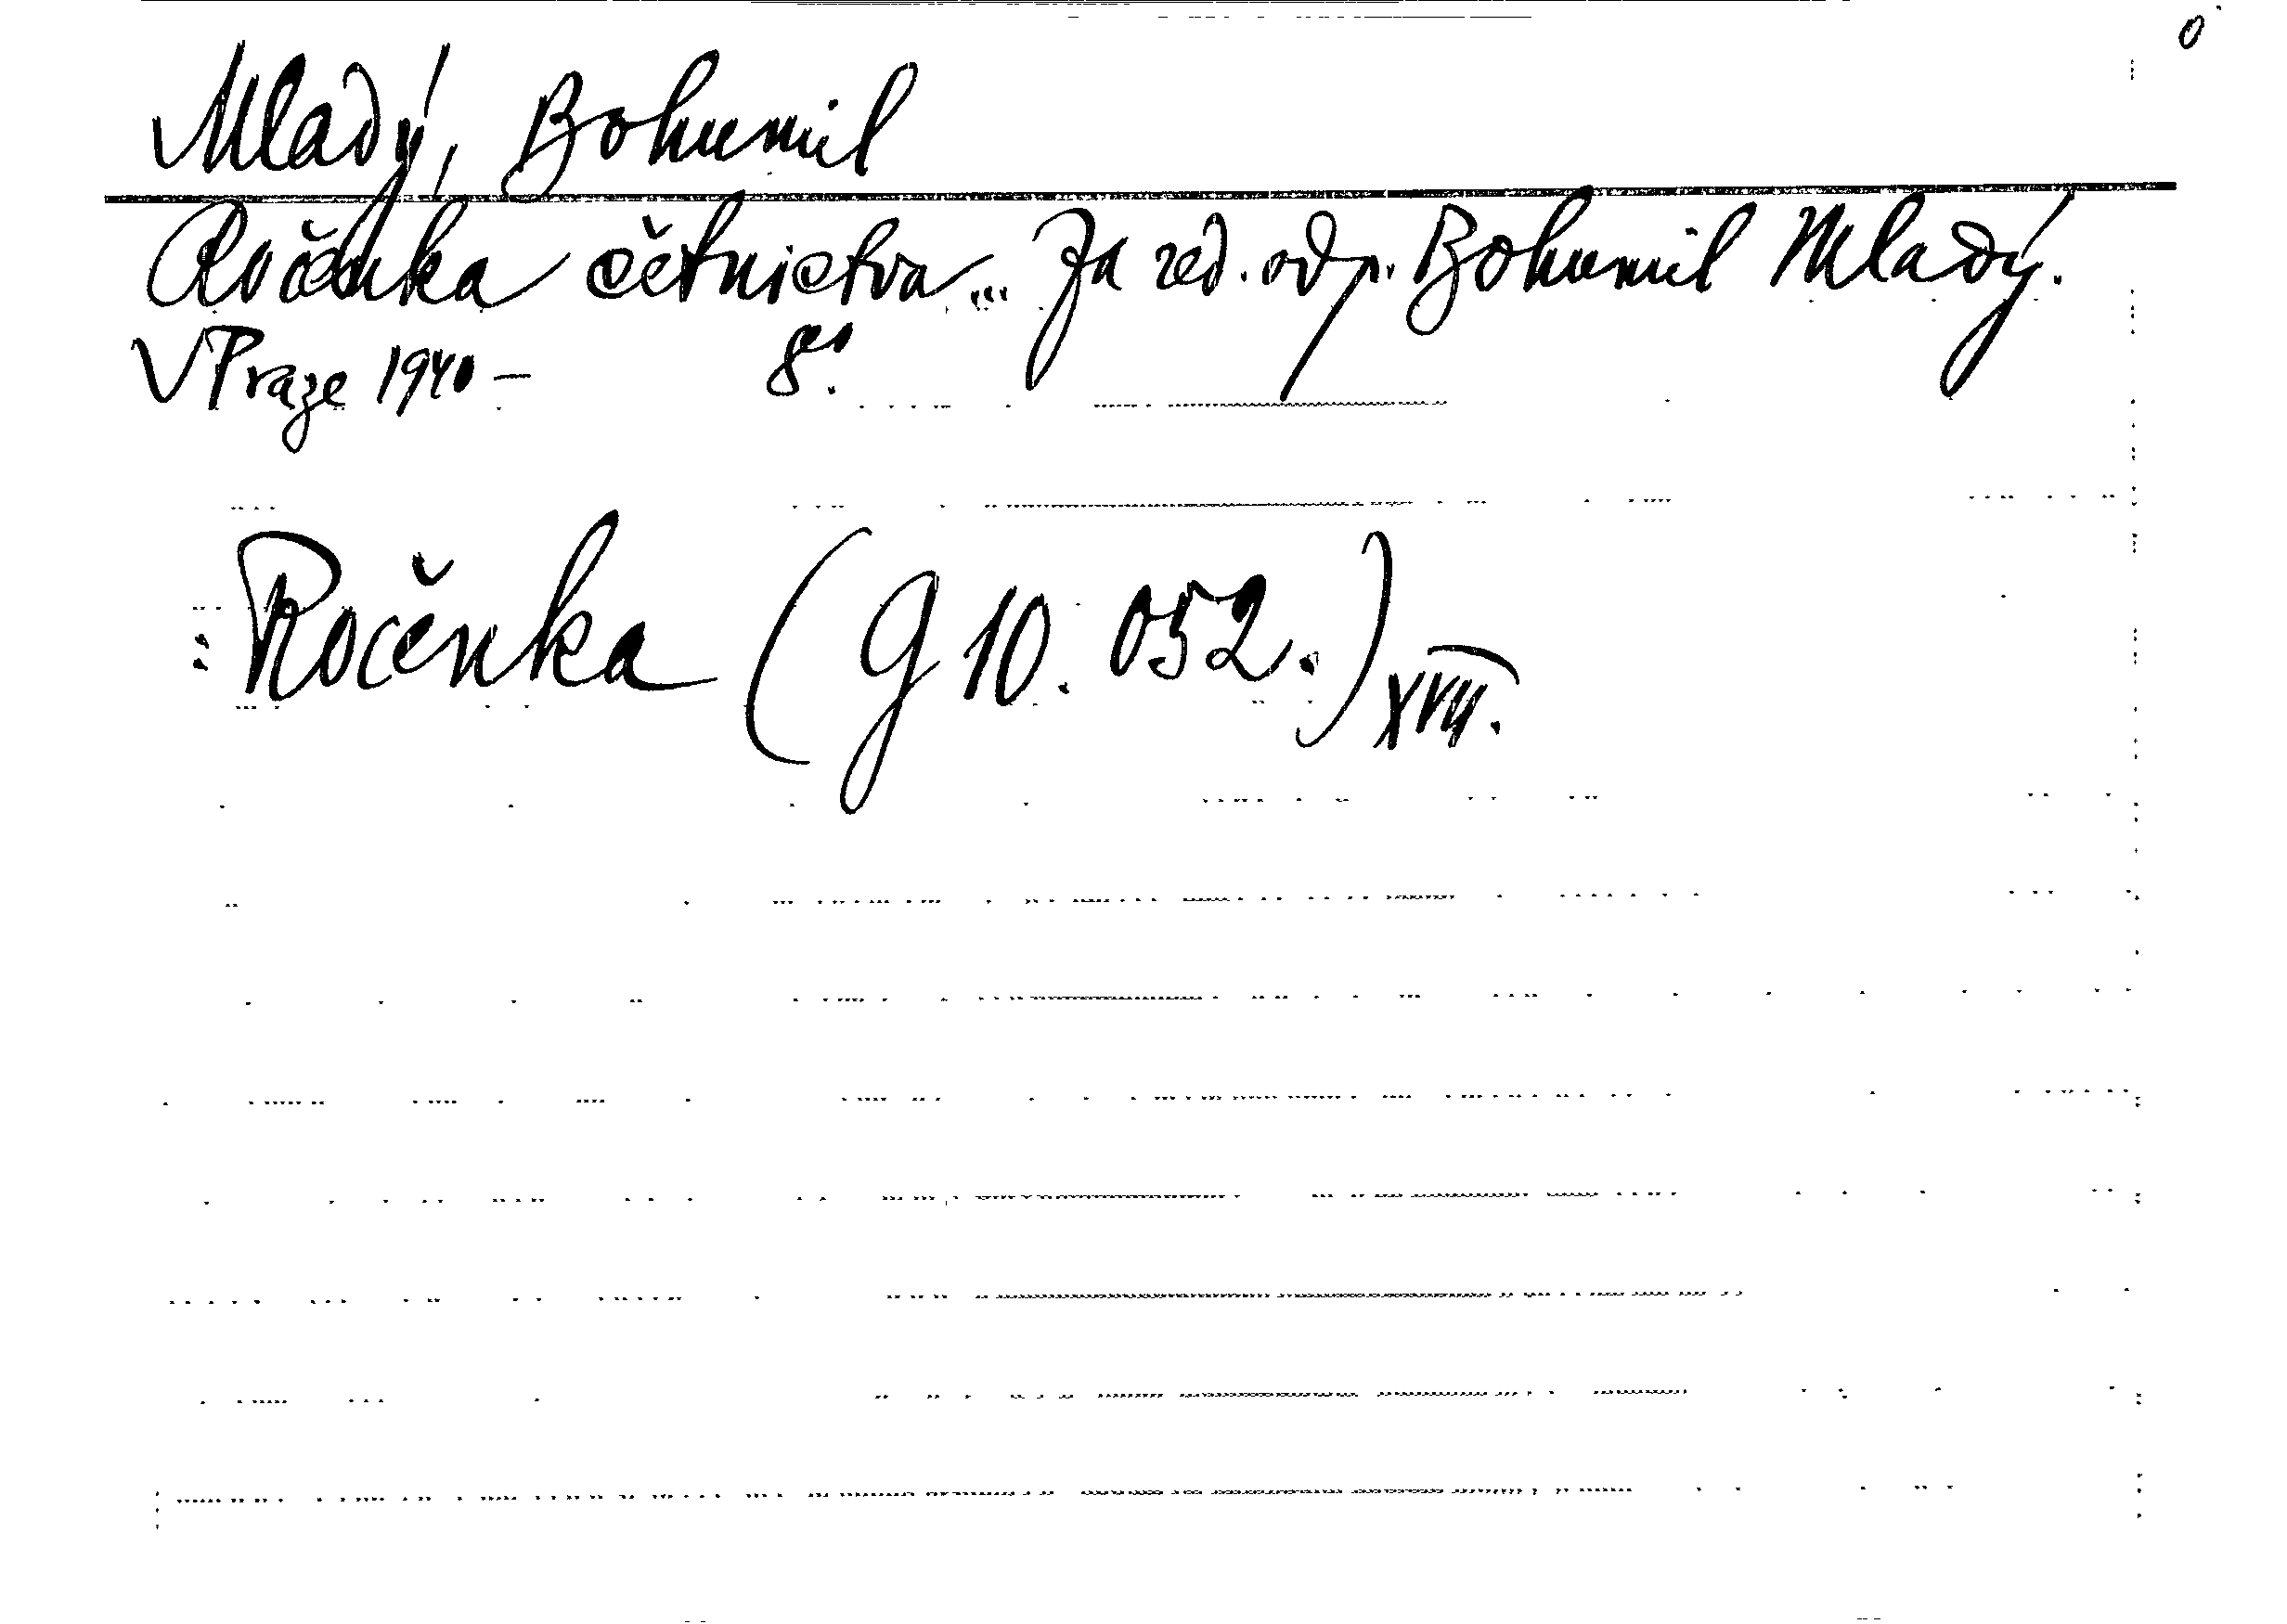 Mladý, Bohumil
Ročenka četnictva... Za red. odp. Bohumil Mladý.
V Praze 1940 – 8°.
: Ročenka (G 10. 052.) XVII.